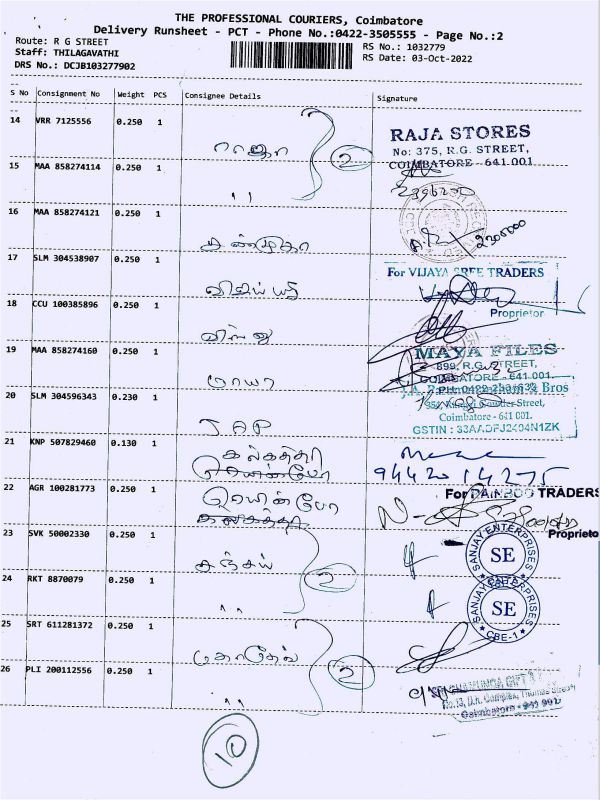 THE PROFESSIONAL COURIERS, Coimbatore
Delivery Runsheet - PCT - Phone No.:0422-3505555 - Page No.:2
Route: R G STREET
RS No.: 1032779
Staff: THILAGAVATHI
RS Date: 03-Oct-2022
DRS No.: DCJB103277902
S No Consignment No Weight PCS Consignee Details Signature
14 VRR 7125556 0.250 1 ராஜா
2
RAJA STORES
No: 375, R.G. STREET,
COIMBATORE - 641 001.
15 MAA 858274114 0.250 1 ''
16 MAA 858274121 0.250 1 சண்முகா
17 SLM 304538907 0.250 1 விஜய ஸ்ரீ
For VIJAYA SREE TRADERS
Proprietor
18 CCU 100385896 0.250 1 விஷ்ணு
19 MAA 858274160 0.250 1 மாயா
MAYA FILES
899, R.G. STREET,
COIMBATORE - 641 001.
20 SLM 304596343 0.230 1 JAP
& Bros
Street,
Coimbatore - 641 001.
GSTIN : 33AADFJ2404N1ZK
21 KNP 507829460 0.130 1 கல்கத்தா
ரெயின்போ
94420 14275
22 AGR 100281773 0.250 1 ரெயின்போ
கல்கத்தா
For RAINBOO TRADERS
Proprieto
23 SVK 50002330 0.250 1 சஞ்சய்
2
SANJAY ENTERPRISES
SE
24 RKT 8870079 0.250 1 ''
SANJAY ENTERPRISES
SE
CBE-1
25 SRT 611281372 0.250 1
2
26 PLI 200112556 0.250 1 ''
Thomas Street
Coimbatore - 641 001
10